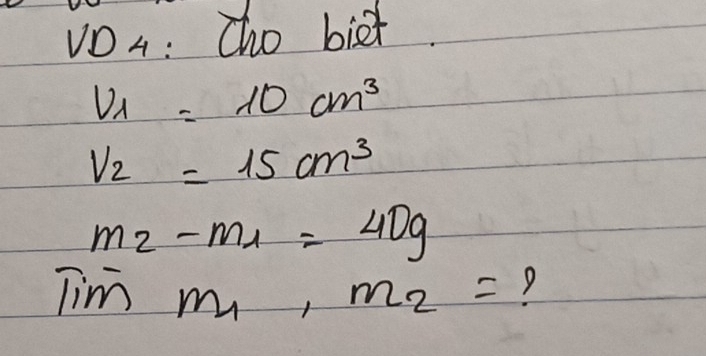 VD4: Cho biết.
V1 = 10 cm³
V2 = 15 cm³
m2 - m1 = 40g
Tìm m1, m2 = ?